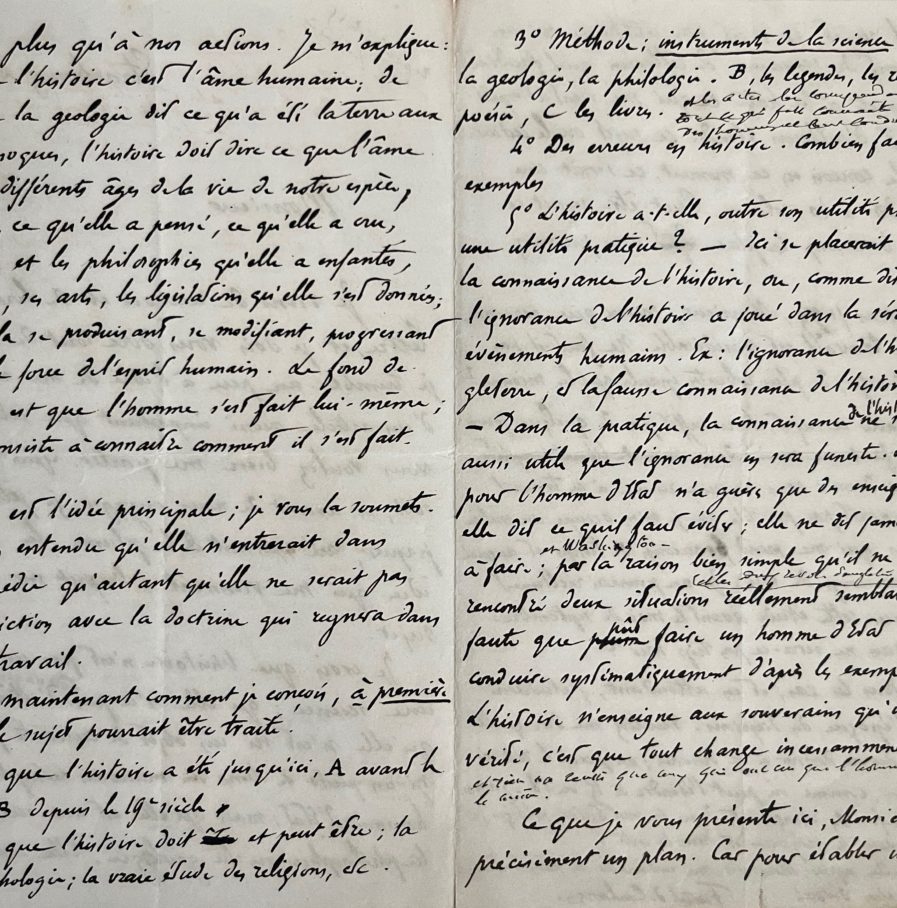 plus qu'à nos actions. Je m'explique :
l'histoire c'est l'âme humaine ; de
la geologie dit ce qu'a été la terre aux
l'histoire doit dire ce que l'âme
différents âges de la vie de notre espèce,
ce qu'elle a pensé, ce qu'elle a cru,
et les philosophies qu'elle a enfantées,
ses arts, les législations qu'elle s'est données ;
se produisant, se modifiant, progressant
force de l'esprit humain. Le fond de
est que l'homme s'est fait lui-même ;
à connaître comment il s'est fait.
est l'idée principale ; je vous la soumets.
entendu qu'elle n'entrerait dans
qu'autant qu'elle ne serait pas
avec la doctrine qui regnera dans
travail.
maintenant comment je conçois, à première
sujet pourrait être traité.
que l'histoire a été jusqu'ici, A avant le
B depuis le 19e siècle
que l'histoire doit et peut être ; la
la vraie étude des religions, etc.
3° Méthode ; instruments de la science
la geologie, la philologie. B, les legendes,
poésie, C les livres.
4° Des erreurs en histoire. Combien
exemples
5° L'histoire a-t-elle, outre son utilité
une utilité pratique ? — Ici se placerait
la connaissance de l'histoire, ou, comme
l'ignorance de l'histoire a joué dans la
évènements humains. Ex : l'ignorance de
et la fausse connaissance de
— Dans la pratique, la connaissance de ne
aussi utile que l'ignorance en sera funeste.
pour l'homme d'Etat n'a guère que des
elle dit ce qu'il faut éviter ; elle ne dit
et Washington —
à faire ; par la raison bien simple qu'il ne
rencontré deux situations réellement
faute que faire un homme d'Etat
conduire systématiquement d'après les
L'histoire n'enseigne aux souverains
vérité, c'est que tout change
Ce que je vous présente ici,
précisément un plan. Car pour établir